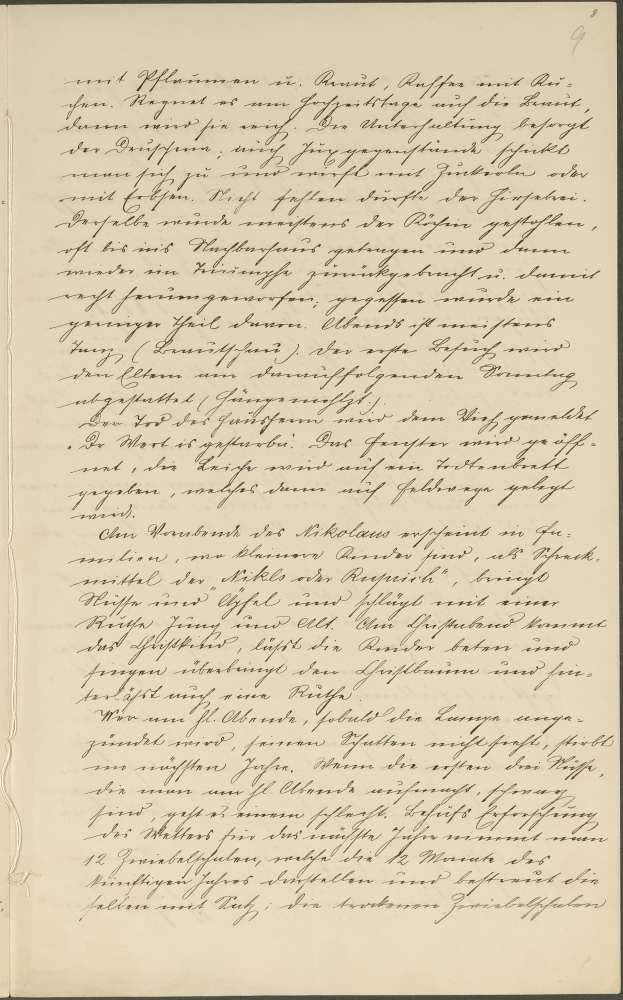 8
9
mit Pflaumen u. Kraut, Kaffee mit Ku-
chen. Regnet es am Hochzeitstage auf die Braut,
dann wird sie reich. Die Unterhaltung besorgt
der Druschma; auch Juxgegenstände schickt
man sich zu und wirft mit Zuckerln oder
mit Erbsen. Nicht fehlen durfte der Hirsebrei.
Derselbe wurde meistens der Köchin gestohlen,
oft bis ins Nachbarhaus getragen und dann
wieder im Triumphe zurückgebracht u. damit
recht herumgeworfen; gegessen wurde ein
geringer Theil davon. Abends ist meistens
Tanz (Brautschau). Der erste Besuch wird
den Eltern am darauffolgenden Sonntag
abgestattet
Der Tod des Hausherrn wird dem Vieh gemeldet
Dr Wert is gestorbn. Das Fenster wird geöff-
net, die Leiche wird auf ein Todtenbrett
gegeben, welches dann auf Feldwege gelegt
wird.
Am Vorabende des Nikolaus erscheint in Fa-
milien, wo kleinere Kinder sind, als Schreck-
mittel der „Nikls oder Rupricht", bringt
Nüsse und Äpfel und schlägt mit einer
Ruthe Jung und Alt. Am Christabend kommt
das Christkind, läßt die Kinder beten und
singen überbringt den Christbaum und hin-
terläßt auch eine Ruthe.
Wer am hl. Abende, sobald die Lampe ange-
zündet wird, seinen Schatten nicht sieht, stirbt
im nächsten Jahre. Wenn die ersten drei Nüsse,
die man am hl. Abende aufmacht, schwarz
sind, geht es einem schlecht. Behufs Erforschung
des Wetters für das nächste Jahr nimmt man
12 Zwiebelschalen, welche die 12 Monate des
künftigen Jahres darstellen und bestreut die
selben mit Salz; die trockenen Zwiebelschalen